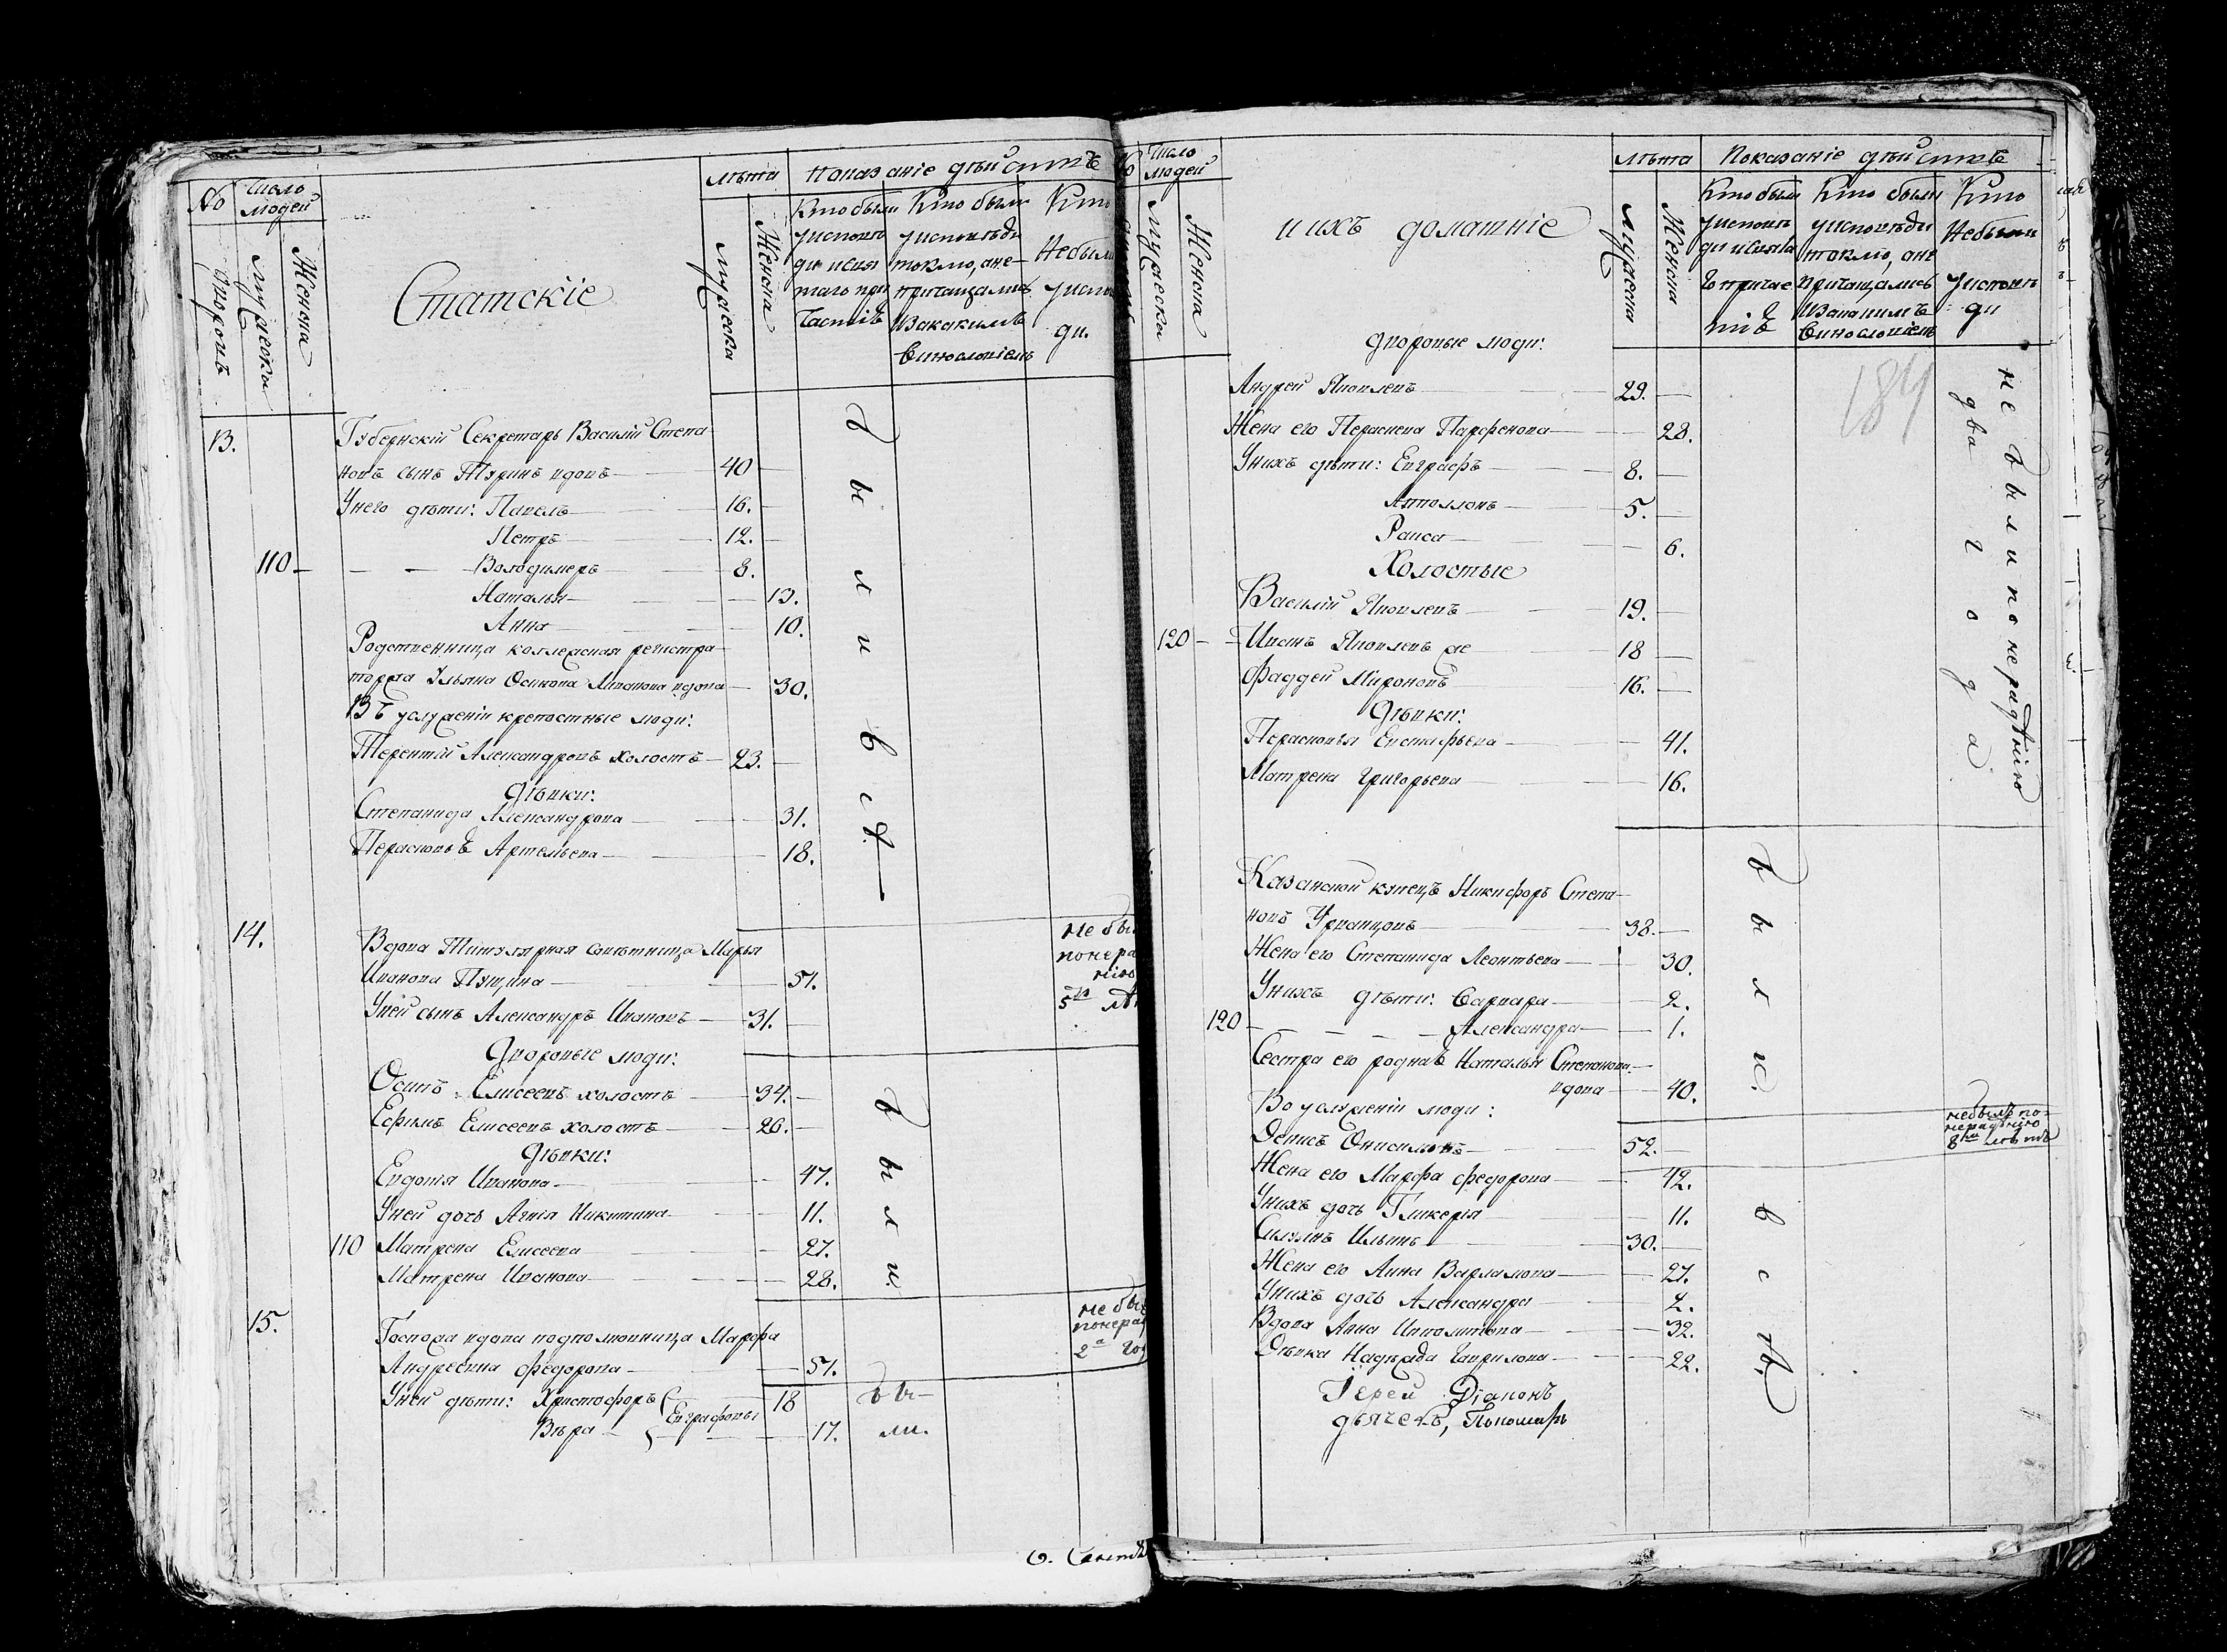 № Число людей
Дворовъ
Мужеска
Женска
Статскіе
Лѣта
Мужеска
Женска
Показаніе дѣйствъ
Кто были у исповѣди и святаго причастія
Кто были у исповѣди токмо, а не причащались и за какимъ винословіемъ
Кто не были у исповѣди.
13. Губернскій Секретарь Василій Степа
новъ сынъ Тюринъ вдовъ 40
У него дѣти: Павелъ 16.
Петръ 12.
110 Володимеръ 8.
Наталья 13.
Анна 10.
Родственница коллежская регистра
торша Ульяна Осипова Иванова вдова 30.
Въ услуженіи крепостные люди:
Терентій Александровъ холостъ 23.
Дѣвки:
Степанида Александрова 31.
Перасковья Артемьева 18.
были всѣ
14. Вдова Титулярная Совѣтница Марья
Иванова Пущина 51.
У ней сынъ Александръ Ивановъ 31.
не бы
понера
нію
5 лѣ
Дворовые люди:
Осипъ Елисеевъ холостъ 34.
Ефимъ Елисеевъ холостъ 26.
Дѣвки:
Евдокія Иванова 47.
У ней дочь Агнія Никитина 11.
110 Матрена Елисеева 27.
Матрена Иванова 28.
были.
15. Госпожа вдова подполковница Марфа
Андреевна Федорова 51.
не бы
понера
2 го
У ней дѣти: Христофоръ 18
Евграфовы
Вѣра 17.
бы
ли.
№ Число людей
Мужеска
Женска
и ихъ домашніе
Лѣта
Мужеска
Женска
Показаніе дѣйствъ
Кто были у исповѣди и святаго причастія
Кто были у исповѣди токмо, а не причащались и за какимъ винословіемъ
Кто не были у исповѣди
184
Дворовые люди:
Андрей Яковлевъ 29.
Жена его Перасковья Парфенова 28.
У нихъ дѣти: Евграфъ 8.
Апполлонъ 5.
Раиса 6.
Холостые
Василій Яковлевъ 19.
120 Иванъ Яковлевъ же 18
Фаддей Мироновъ 16.
Дѣвки:
Перасковья Евстафьева 41.
Матрена Григорьева 16.
не были по нерадѣнію
два года
Казанской купецъ Никифоръ Степа
новъ Урванцовъ 38.
Жена его Степанида Леонтьева 30.
У нихъ дѣти: Варвара 2.
120 Александра 1.
Сестра его родная Наталья Степанова
вдова 40.
были.
Во услуженіи люди:
Денисъ Онисимовъ 52.
не былъ по
нерадѣнію
8 лѣтъ
Жена его Марфа Федорова 42.
У нихъ дочь Гликерія 11.
Ильинъ 30.
Жена его Анна Варламова 27.
У нихъ дочь Александра 2.
Вдова Анна Ипполитова 32.
Дѣвка Надежда Гаврилова 22.
всѣ.
Іерей Діаконъ
дьячекъ, Пономарь